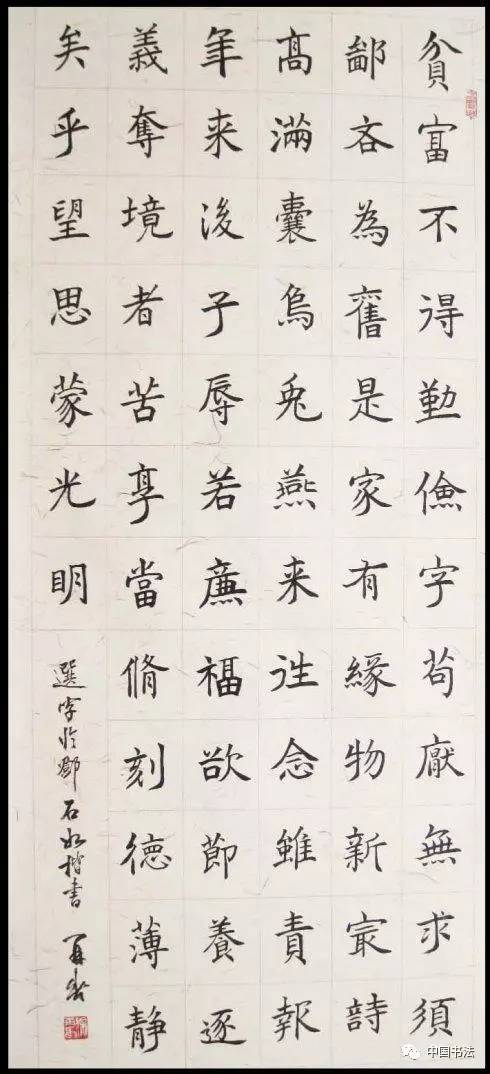 貧富不得勤儉字苟厭無求須
鄙吝為舊是家有緣物新冣詩
高滿囊烏兔燕来往念雖責報
年来後子辱若廉福欲節養逐
義奪境者苦享當脩刻德薄静
矣乎望思蒙光明
選字臨鄧石如楷書
中国书法